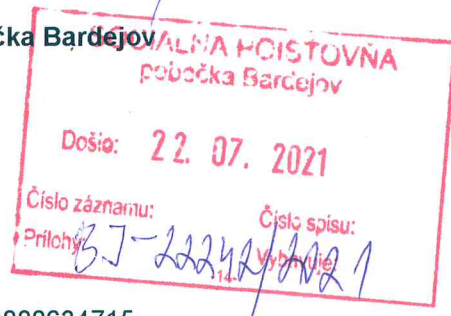 čka Bardejov
SOCIÁLNA POISŤOVŇA
pobočka Bardejov
Došlo: 22. 07. 2021
Číslo záznamu: Číslo spisu:
Prílohy: Vybavuje:
BJ-22242/2021
14